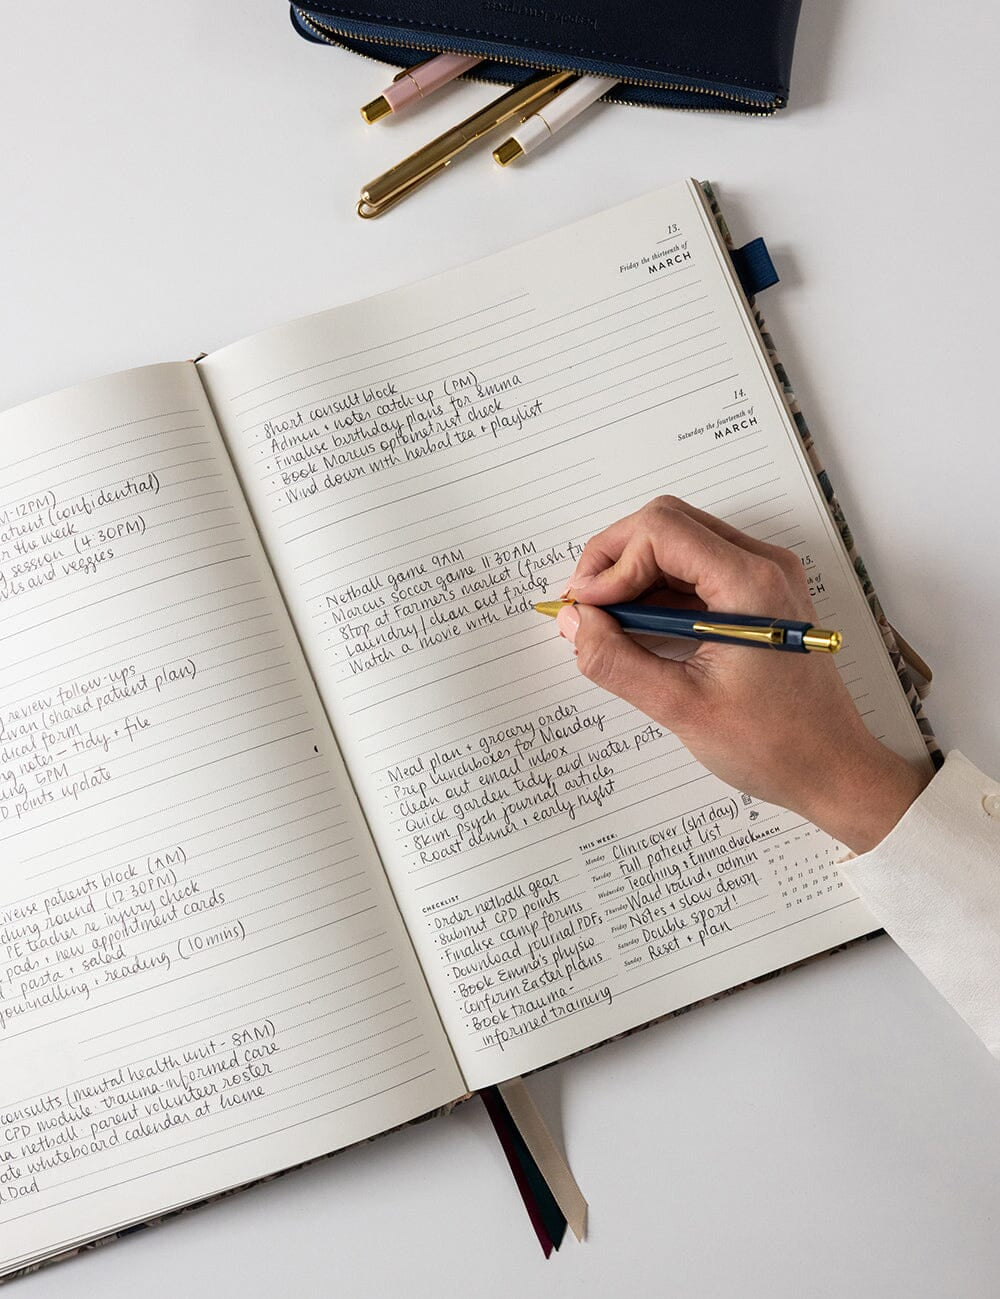 bespoke letterpress
M-12PM)
atient (confidential)
r the week
session (4:30PM)
and veggies
review follow-ups
(shared patient plan)
dical form
ng notes - tidy + file
5PM
points update
verse patients block (AM)
ching round (12:30PM)
PE teacher re injury check
pads + new appointment cards
pasta + salad
journalling + reading (10 mins)
consults (mental health unit - 8AM)
CPD module: trauma-informed care
netball: parent volunteer roster
ate whiteboard calendar at home
Dad
13.
Friday the thirteenth of
MARCH
· Short consult block
· Admin + notes catch up (PM)
· Finalise birthday plans for Emma
· Book Marcus optometrist check
· Wind down with herbal tea + playlist
14.
Saturday the fourteenth of
MARCH
· Netball game 9AM
· Marcus soccer game 11:30AM
· Stop at Farmer's market (fresh fru
· Laundry / clean out fridge
· Watch a movie with kids
15.
of
CH
· Meal plan + grocery order
· Prep lunchboxes for Monday
· Clean out email inbox
· Quick garden tidy and water pots
· Skim psych journal articles
· Roast dinner + early night
CHECKLIST
· Order netball gear
· Submit CPD points
· Finalise camp forms
· Download journal PDFs
· Book Emma's physio
· Confirm Easter plans
· Book trauma-
informed training
THIS WEEK:
Monday Clinic over (sht day)
Tuesday Full patient list
Wednesday Teaching + Emma check
Thursday Ward round + admin
Friday Notes + slow down
Saturday Double sport!
Sunday Reset + plan
MARCH
30 31
2 3 4 5 6 7 8
9 10 11 12 13 14
16 17 18 19 20 21
23 24 25 26 27 28